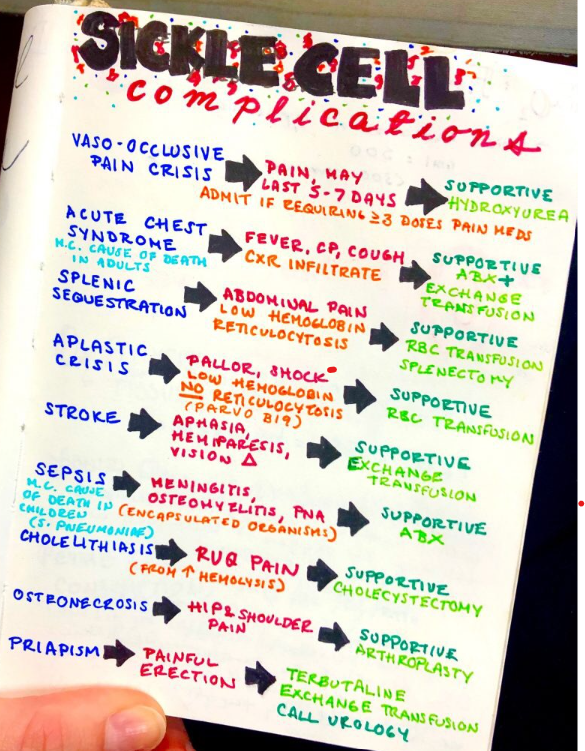 SICKLE CELL
complications
VASO-OCCLUSIVE
PAIN CRISIS
PAIN, MAY
LAST 5-7 DAYS
ADMIT IF REQUIRING ≥3 DOSES PAIN MEDS
SUPPORTIVE
HYDROXYUREA
ACUTE CHEST
SYNDROME
M.C. CAUSE OF DEATH
IN ADULTS
FEVER, CP, COUGH
CXR INFILTRATE
SUPPORTIVE
ABX +
EXCHANGE
TRANSFUSION
SPLENIC
SEQUESTRATION
ABDOMINAL PAIN
LOW HEMOGLOBIN
RETICULOCYTOSIS
SUPPORTIVE
RBC TRANSFUSION
SPLENECTOMY
APLASTIC
CRISIS
PALLOR, SHOCK
LOW HEMOGLOBIN
NO RETICULOCYTOSIS
(PARVO B19)
SUPPORTIVE
RBC TRANSFUSION
STROKE
APHASIA,
HEMIPARESIS,
VISION Δ
SUPPORTIVE
EXCHANGE
TRANSFUSION
SEPSIS
M.C. CAUSE
OF DEATH IN
CHILDREN
(S. PNEUMONIAE)
MENINGITIS,
OSTEOMYELITIS, PNA
(ENCAPSULATED ORGANISMS)
SUPPORTIVE
ABX
CHOLELITHIASIS
RUQ PAIN
(FROM ↑ HEMOLYSIS)
SUPPORTIVE
CHOLECYSTECTOMY
OSTRONECROSIS
HIP & SHOULDER
PAIN
SUPPORTIVE
ARTHROPLASTY
PRIAPISM
PAINFUL
ERECTION
TERBUTALINE
EXCHANGE TRANSFUSION
CALL UROLOGY